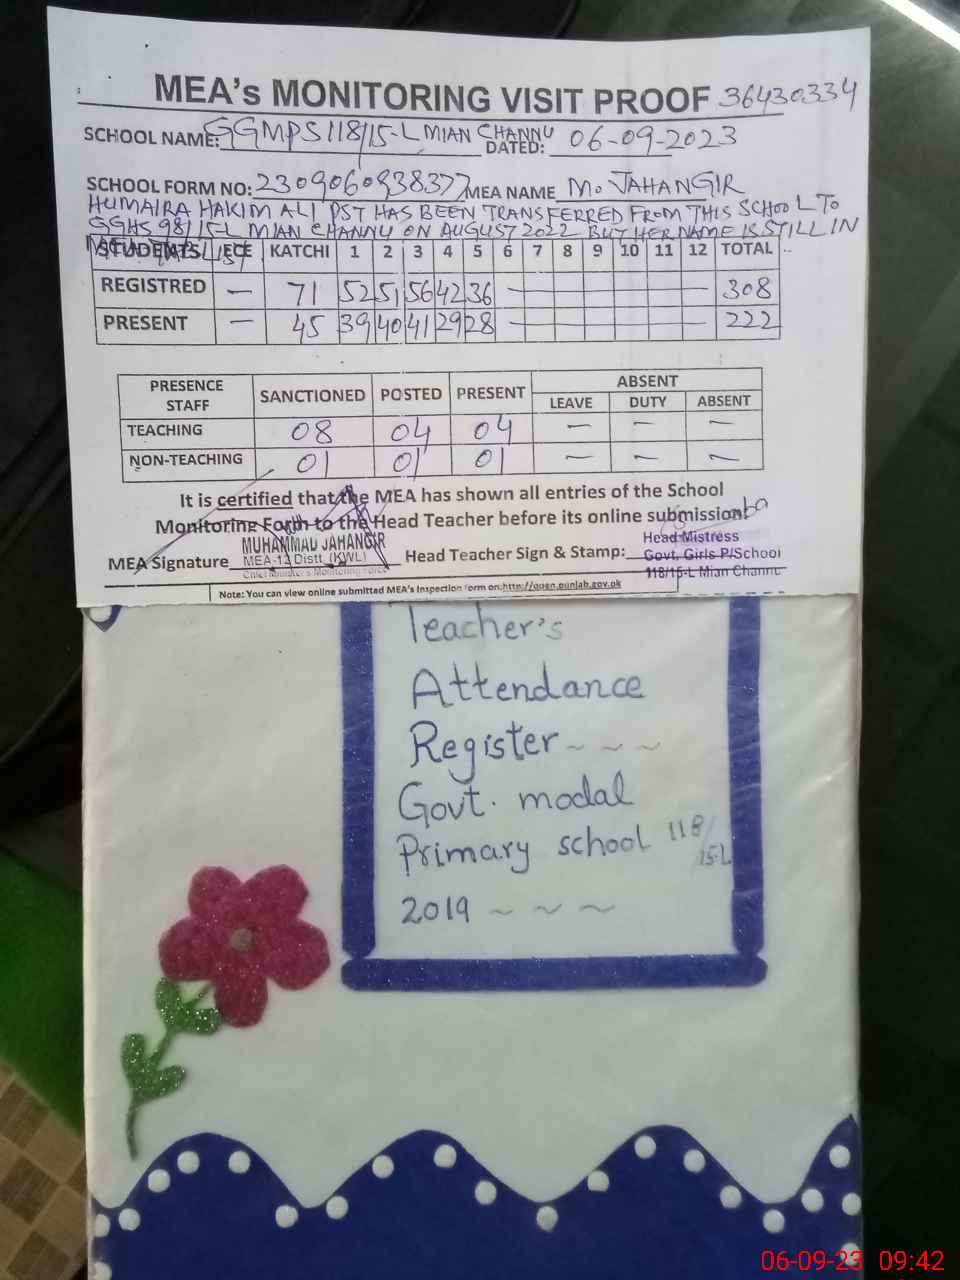 MEA's MONITORING VISIT PROOF 36430334
SCHOOL NAME: GGMPS 118/15-L MIAN CHANNU DATED: 06-09-2023
SCHOOL FORM NO: 2309060938377 MEA NAME M. JAHANGIR
HUMAIRA HAKIM ALI PST HAS BEEN TRANSFERRED FROM THIS SCHOOL TO
GGHS 98/15-L MIAN CHANNU ON AUGUST 2022 BUT HER NAME IS STILL IN
STUDENTS ECE KATCHI 1 2 3 4 5 6 7 8 9 10 11 12 TOTAL
REGISTRED — 71 52 51 56 42 36 — 308
PRESENT — 45 39 40 41 29 28 — 222
PRESENCE STAFF SANCTIONED POSTED PRESENT ABSENT
LEAVE DUTY ABSENT
TEACHING 08 04 04 — — —
NON-TEACHING 01 01 01 — — —
It is certified that the MEA has shown all entries of the School
Monitoring Form to the Head Teacher before its online submission
MUHAMMAD JAHANGIR
MEA-12 Distt. (KWL)
Chief Minister's Monitoring Force
MEA Signature
Head Teacher Sign & Stamp:
Head Mistress
Govt. Girls P/School
118/15-L Mian Channu
Note: You can view online submitted MEA's Inspection form on: http://open.punjab.gov.pk
Teacher's
Attendance
Register ~ ~ ~
Govt. modal
Primary school 118/
15-L
2019 ~ ~ ~
06-09-23 09:42